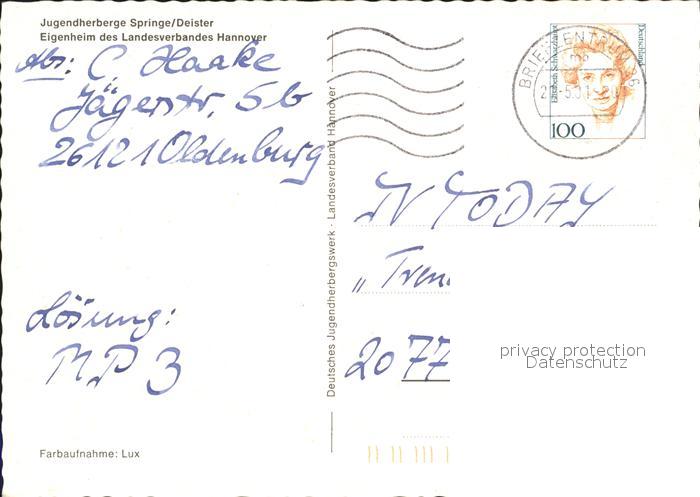 Jugendherberge Springe/Deister
Eigenheim des Landesverbandes Hannover
Abs: C. Haake
Jägerstr. 5b
26121 Oldenburg
Lösung:
MP 3
Farbaufnahme: Lux
Deutsches Jugendherbergswerk - Landesverband Hannover
BRIEFZENTRUM 26
Elisabeth Schwarzhaupt
Deutschland
100
TV TODAY
"Tren
20 77
privacy protection
Datenschutz